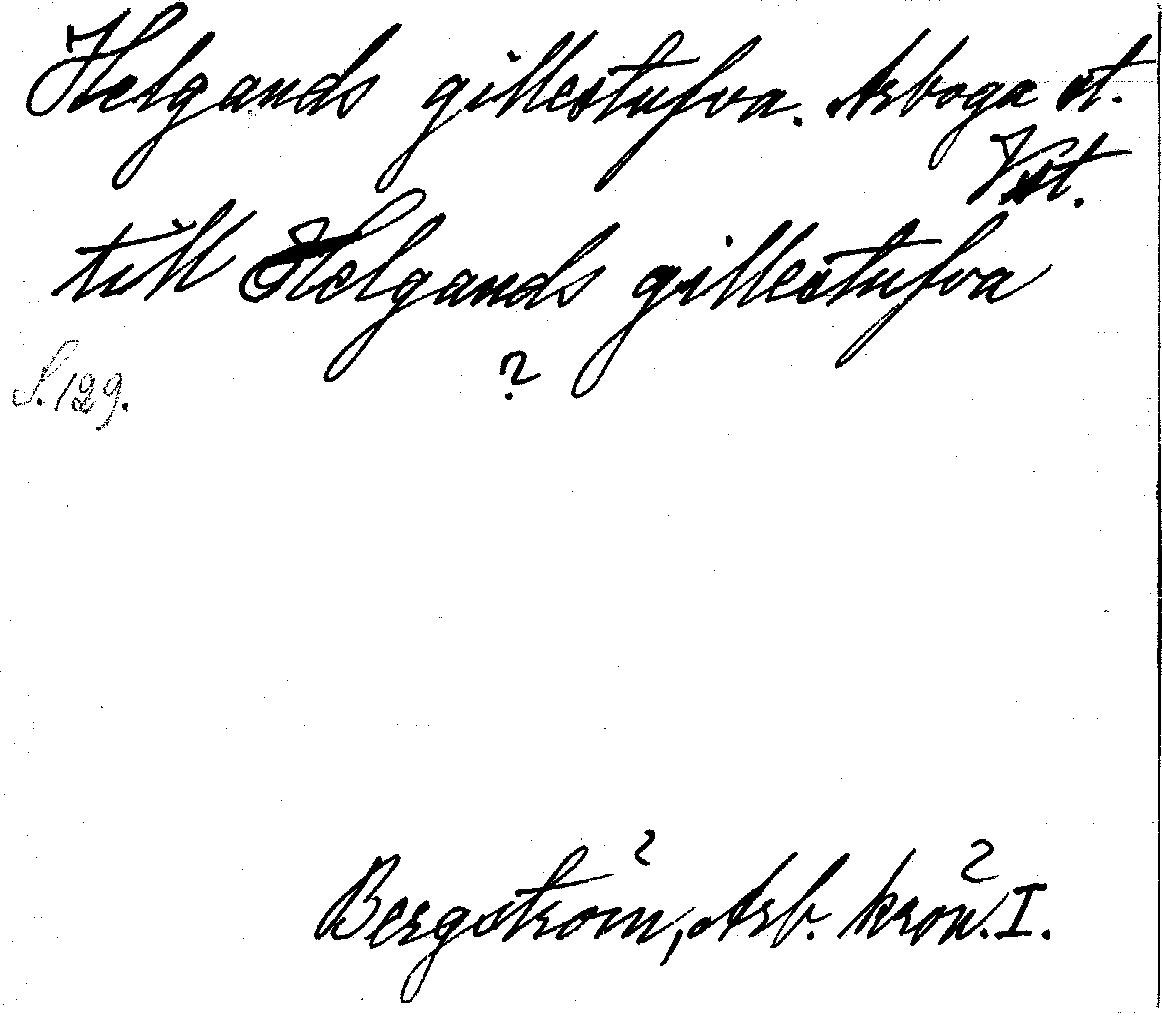 Helgands gillestufva. Arboga st.
Vst.
till Helgands gillestufva
?
S. 129.
Bergström, Arb. krön. I.